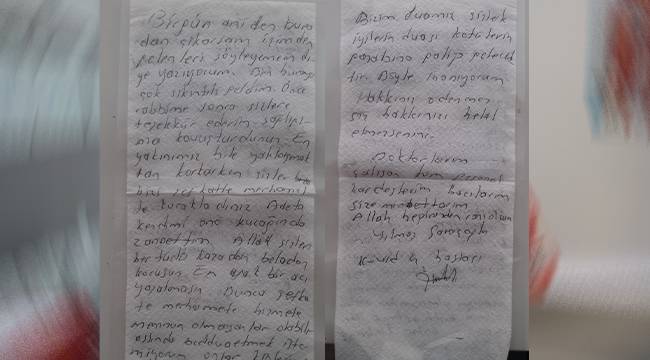 Birgün aniden bura
dan çıkarsam içimden
gelenleri söyleyemem di
ye yazıyorum. Ben buraya
çok sıkıntılı geldim. Önce
rabbime sonra sizlere
teşekkür ederim sağlığı
ma kavuşturdunuz. En
yakınımız bile yaklaşmak
tan korkarken sizler
bizi şefkatle merhamet
le kucakladınız Adeta
kendimi ana kucağında
zannettim. Allah sizleri
her türlü kazadan beladan
korusun. En ufak bir acı
yaşatmasın. Bunca şefka
te merhamete hizmete
memnun olmayanlar olabilir
aslında beddua etmek iste
miyorum onlar
Bizim duamız sizlere
iyilerin duası kötülerin
galip gelecek
tir. Böyle inanıyorum
Hakkınız ödenmez
hakkınızı helal
Doktorlarım
çalışan tüm personel
kardeşlerim bacılarım
size minnettarım
Allah hepinizden razı olsun
Yılmaz
Kovid 19 hastası